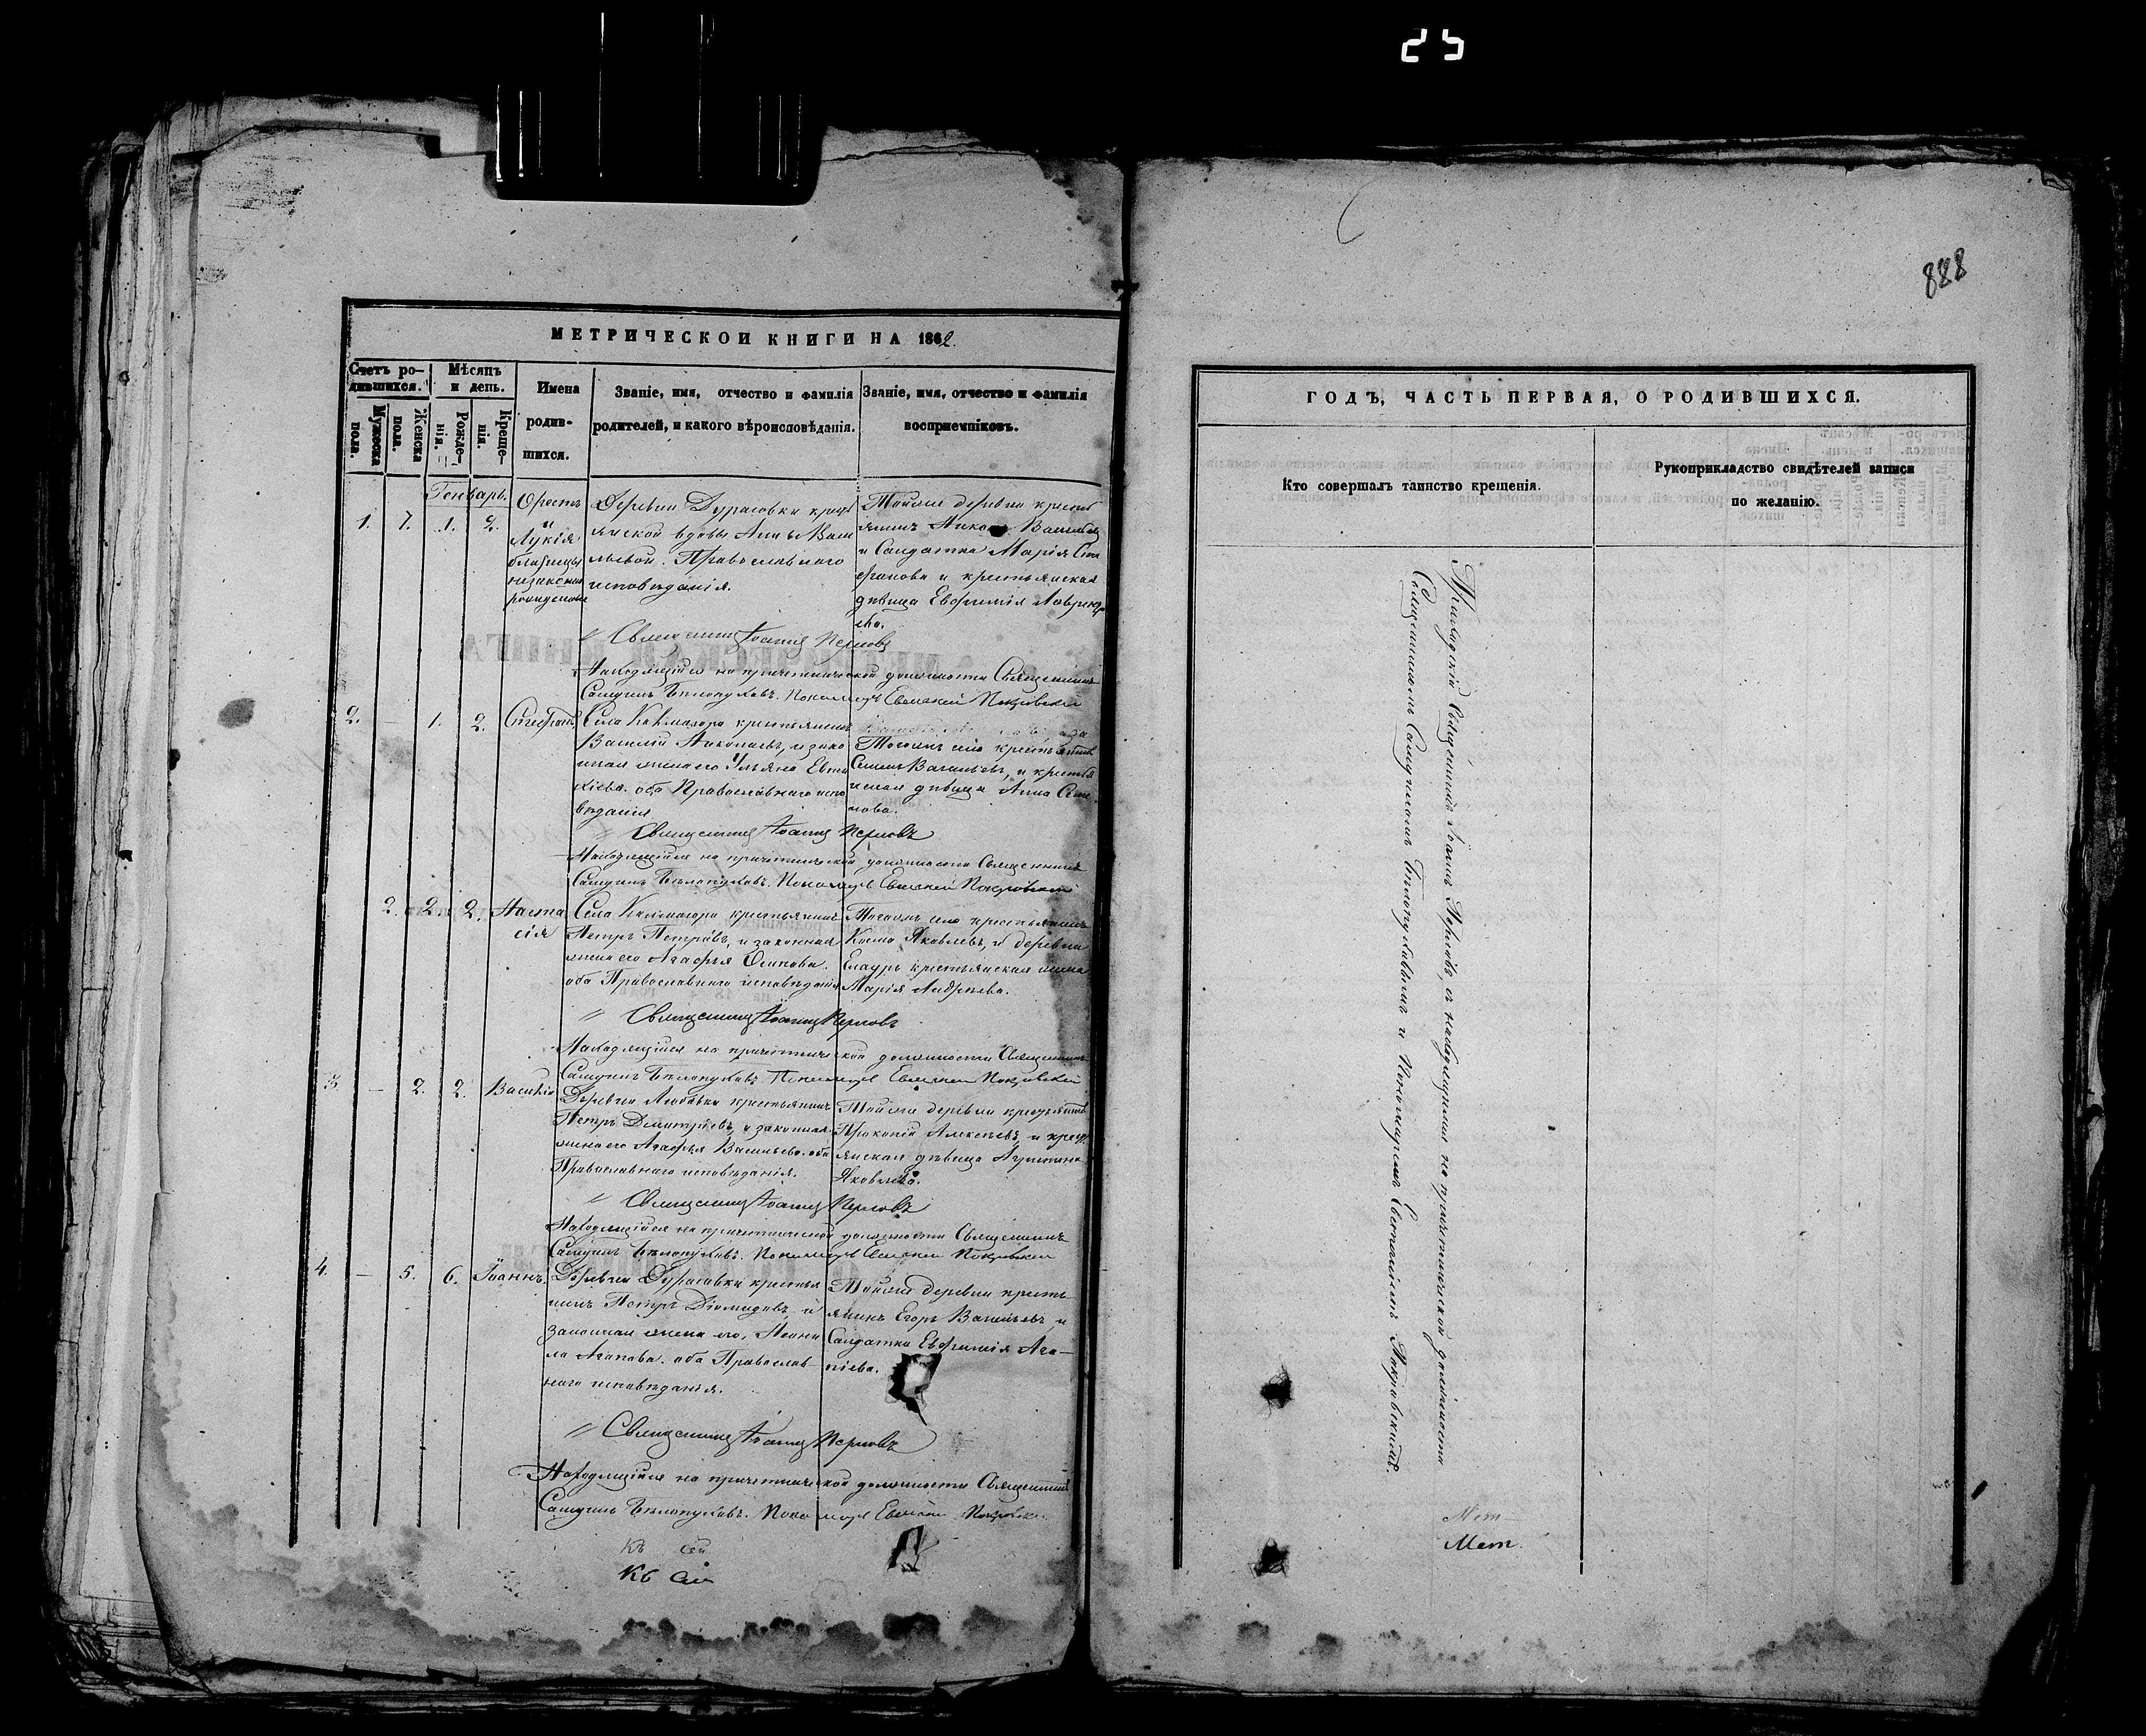 25
888
МЕТРИЧЕСКОЙ КНИГИ НА 1862.
Счетъ ро-
дившихся.
Мѣсяцъ
и день.
Мужеска
пола.
Женска
пола.
Рожде-
нія.
Креще-
нія.
Имена
родив-
шихся.
Званіе, имя, отчество и фамилія
родителей, и какого вѣроисповѣданія.
Званіе, имя, отчество и фамилія
воспріемниковъ.
Генварь.
1. 1. 1. 2.
Орестъ
и
Лукія
близнецы
незаконно
рожденные
Деревни Дурасовки кресть
янской вдовы Анны Васи
льевой. Православнаго
исповѣданія.
Тойже деревни кресть
янинъ Василь
и Салдатка Марія Сте
фанова и крестьянская
дѣвица Евфимія Лаврентье
ва.
Священникъ Іоаннъ Перловъ
Находящійся на причетнической должности Священникъ
Самуилъ Бѣлопуховъ. Пономарь Евгеній Покровскій
2. — 1. 2.
Стефанъ
Села крестьянинъ
Василій Николаевъ, и зако
нная жена его Ульяна Евти
хіева. оба Православнаго испо
вѣданія
Тогоже села крестьянинъ
Семенъ Васильевъ, и крестья
нская дѣвица Анна Семе
нова.
Священникъ Іоаннъ Перловъ
Находящійся на причетнической должности Священникъ
Самуилъ Бѣлопуховъ. Пономарь Евгеній Покровскій
2. 2. 2.
Наста
сія
Села крестьянинъ
Петръ Петровъ, и законная
жена его Агафья Осипова.
оба Православнаго исповѣданія
Тогоже села крестьянинъ
Косма Яковлевъ, и деревни
Елауръ крестьянская жена
Марія Андреева.
Священникъ Іоаннъ Перловъ
Находящійся на причетнической должности Священникъ
Самуилъ Бѣлопуховъ Пономарь Евгеній Покровскій
3. — 2. 2.
Василій
Деревни Любовки крестьянинъ
Петръ Димитріевъ, и законная
жена его Агафья Васильева. оба
Православнаго исповѣданія.
Тойже деревни крестьянинъ
Прокопій Алексѣевъ, и крест
янская дѣвица
Яковлева.
Священникъ Іоаннъ Перловъ
Находящійся на причетнической должности Священникъ
Самуилъ Бѣлопуховъ. Пономарь Евгеній Покровскій
4. — 5. 6.
Іоаннъ.
Деревни Дурасовки крестья
нинъ Петръ Діомидовъ, и
законная жена его, Неони
ла Агапова. оба Православ-
наго исповѣданія.
Тойже деревни кресть-
янинъ Егоръ Васильевъ, и
Салдатка Евфимія Ага-
піева.
Священникъ Іоаннъ Перловъ
Находящійся на причетнической должности Священникъ
Самуилъ Бѣлопуховъ. Пономарь Евгеній Покровскій
Къ сей
Къ сей
ГОДЪ, ЧАСТЬ ПЕРВАЯ, О РОДИВШИХСЯ.
Кто совершалъ таинство крещенія.
Рукоприкладство свидѣтелей записи
по желанію.
Приходскій Священникъ Іоаннъ Перловъ, съ находящимися на причетнической должности
Священникомъ Самуиломъ Бѣлопуховымъ и Пономаремъ Евгеніемъ Покровскимъ.
Мет
Мет.